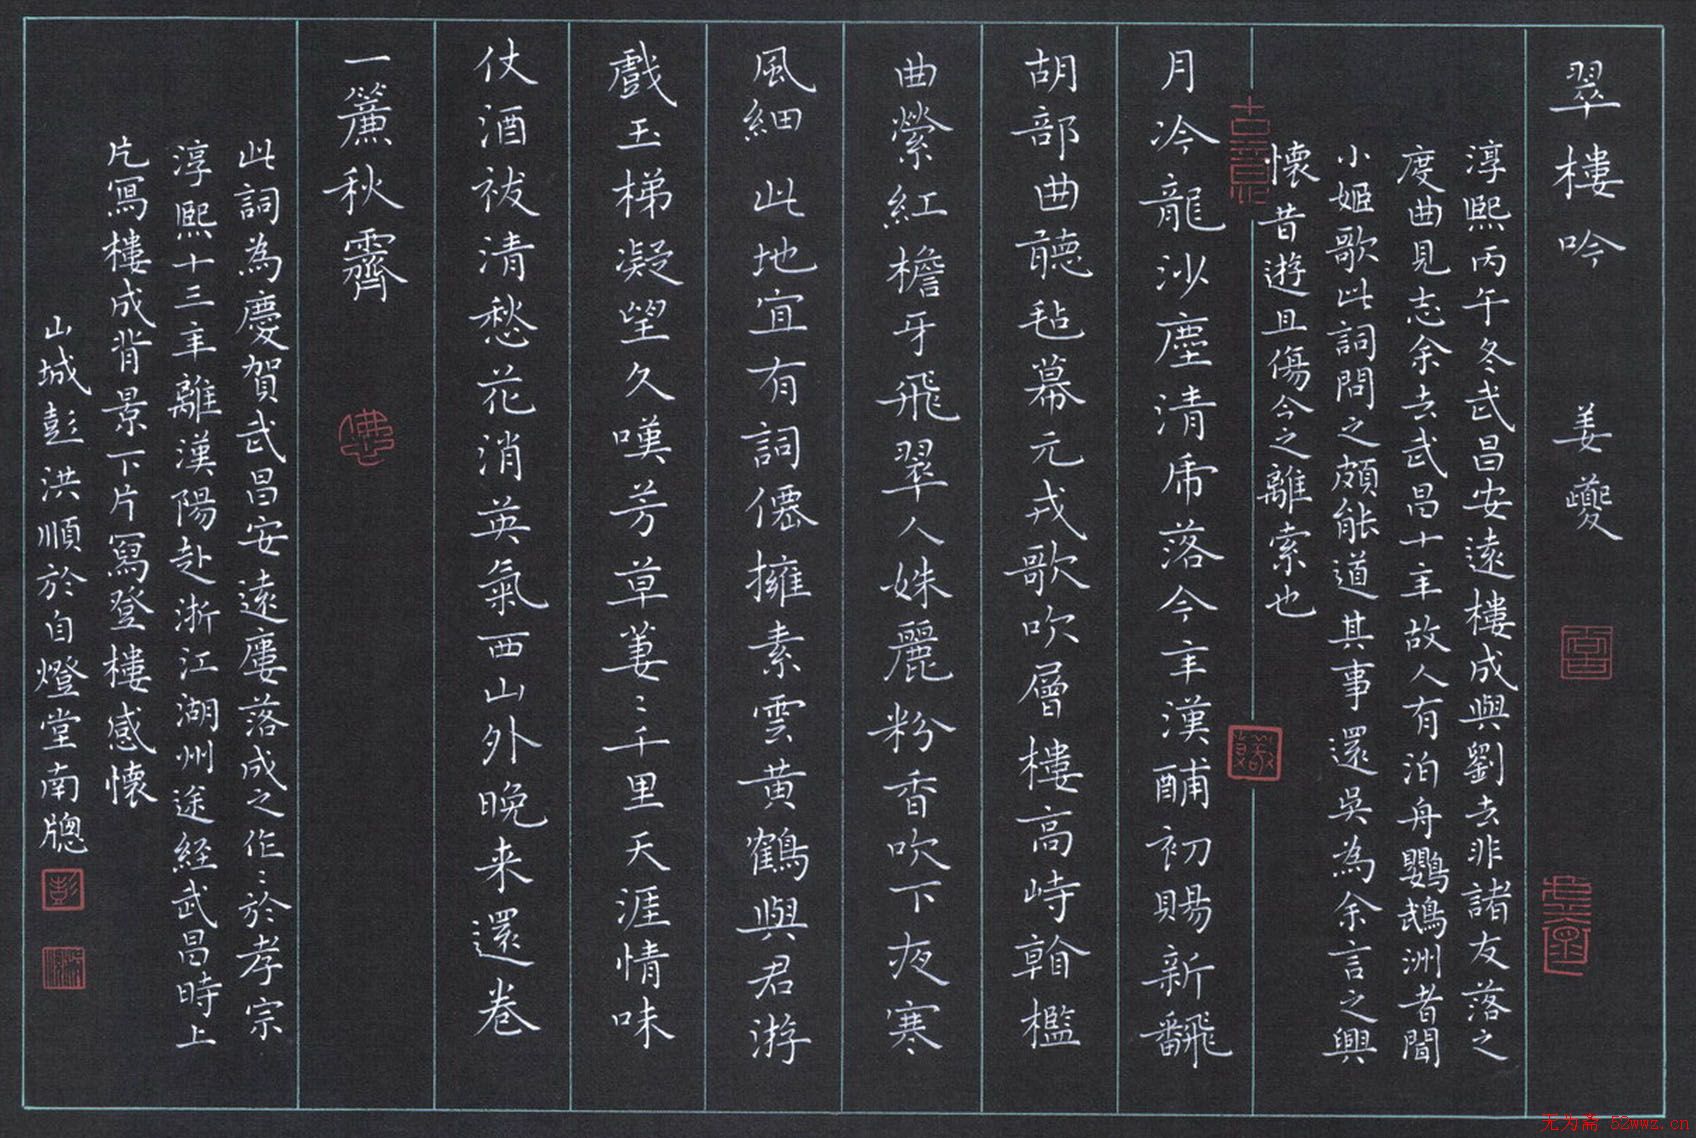 翠樓吟 姜夔
淳熙丙午冬武昌安遠樓成與劉去非諸友落之
度曲見志余去武昌十年故人有泊舟鸚鵡洲者聞
小姬歌此詞問之頗能道其事還吳為余言之興
懷昔遊且傷今之離索也
月冷龍沙塵清虎落今年漢酺初賜新翻
胡部曲聽氈幕元戎歌吹層樓高峙㪋檻
曲縈紅檐牙飛翠人姝麗粉香吹下夜寒
風細 此地宜有詞僊擁素雲黃鶴與君游
戲玉梯凝望久嘆芳草萋〻千里天涯情味
仗酒祓清愁花消英氣西山外晚来還卷
一簾秋霽
此詞為慶賀武昌安遠廔落成之作〻於孝宗
淳熙十三年離漢陽赴浙江湖州途経武昌時上
片寫樓成背景下片寫登樓感懷
山城彭洪順於自燈堂南牕
无为斋 52wwz.cn